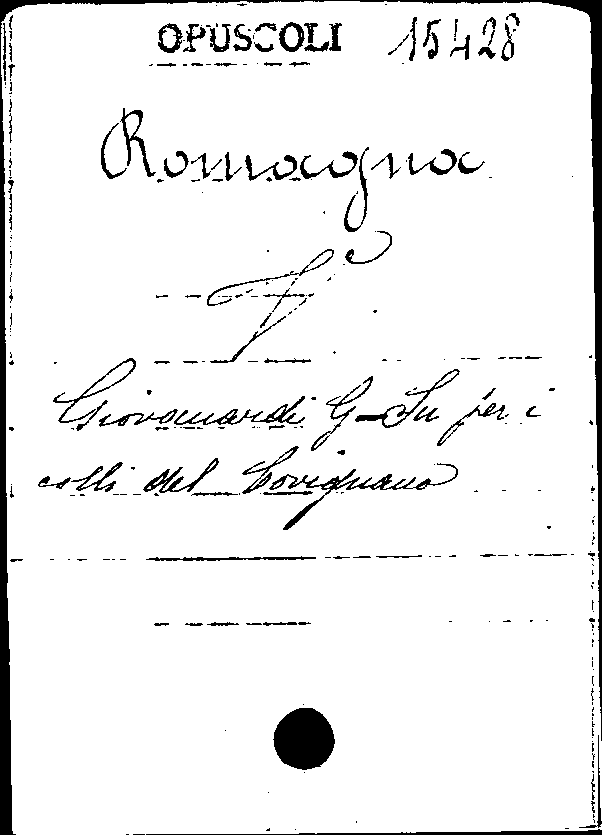 OPUSCOLI 15428
Romagna
V
Giovanardi G - Su per i
colli del Covignano